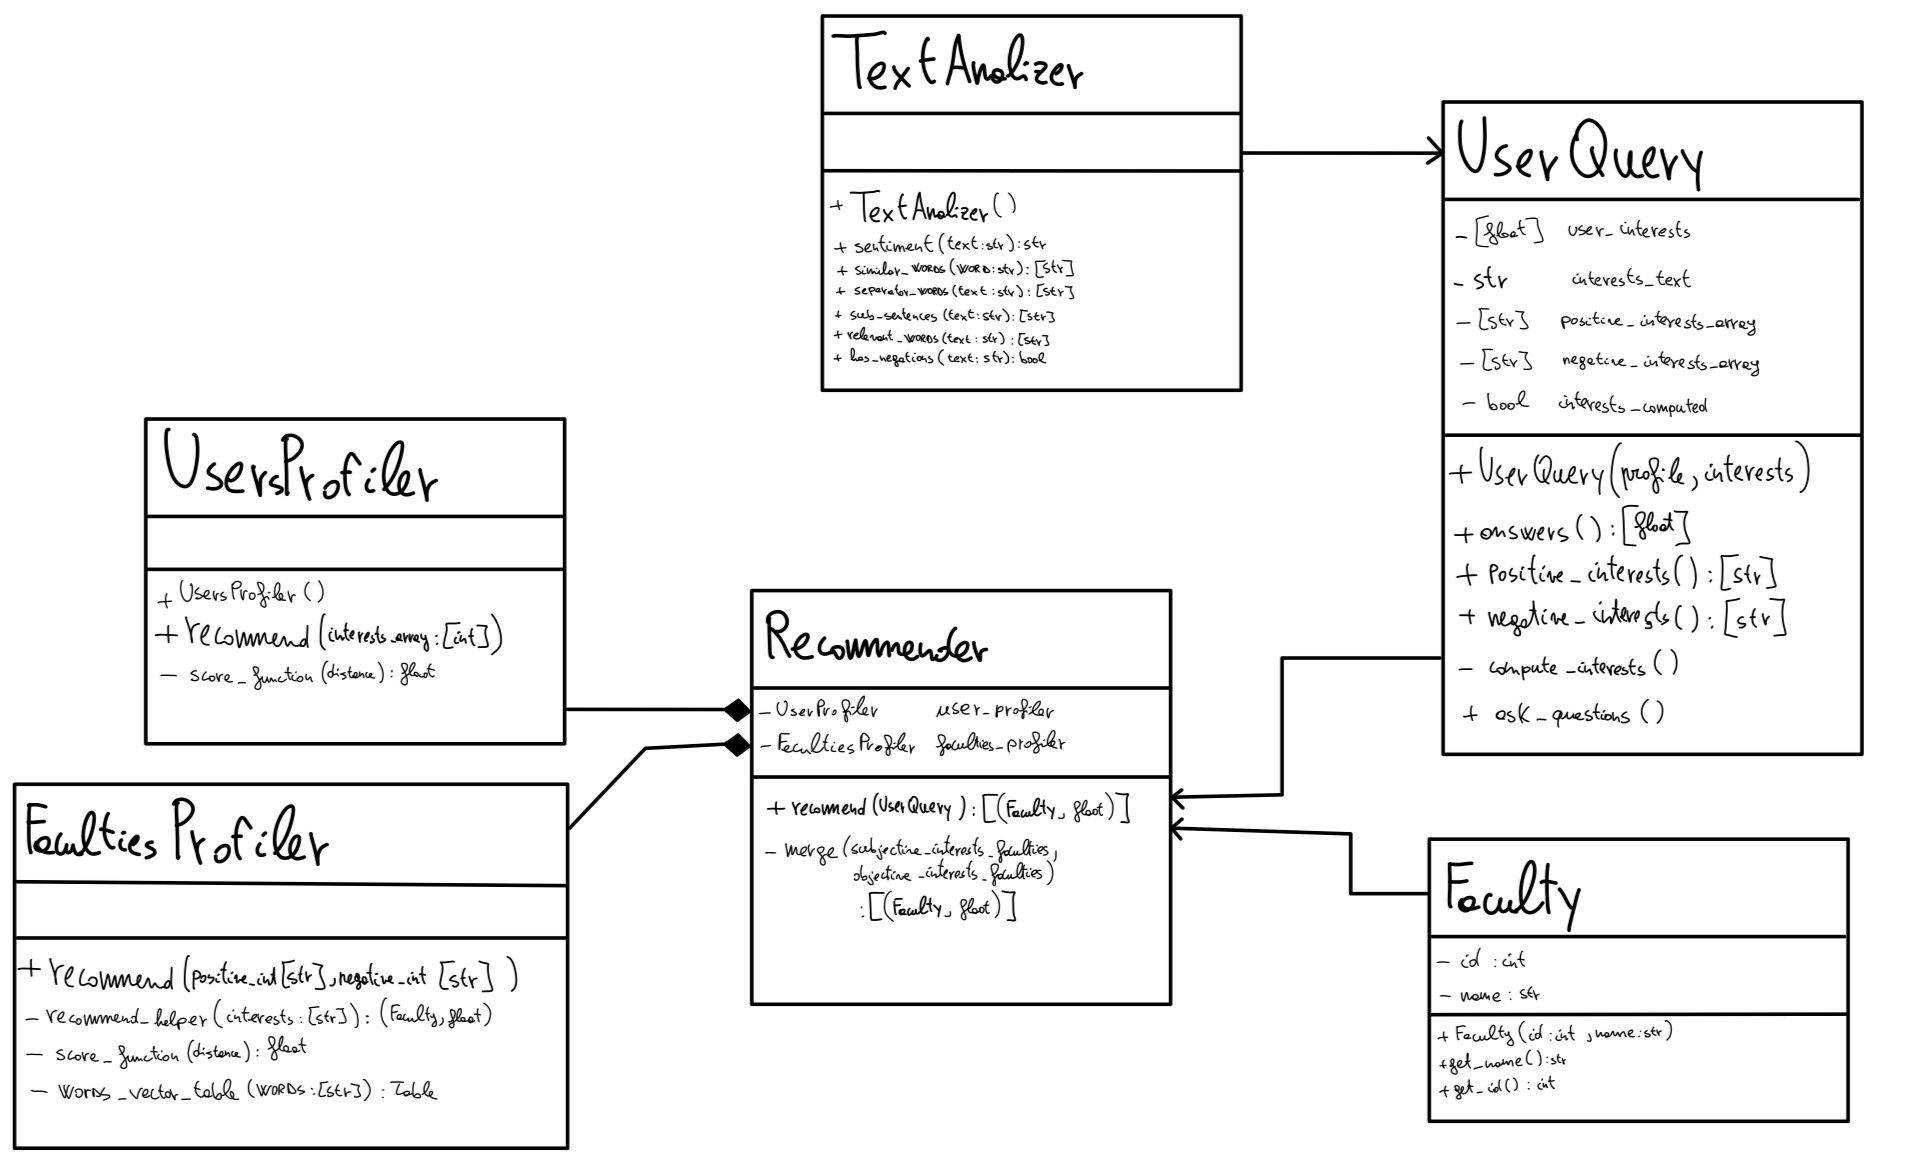 TextAnalizer
+ TextAnalizer()
+ sentiment(text:str):str
+ similar_words(word:str):[str]
+ separator_words(text:str):[str]
+ sub_sentences(text:str):[str]
+ relevant_words(text:str):[str]
+ has_negations(text:str):bool
UserQuery
- [float] user_interests
- str interests_text
- [str] positive_interests_array
- [str] negative_interests_array
- bool interests_computed
+ UserQuery(profile, interests)
+ answers():[float]
+ positive_interests():[str]
+ negative_interests():[str]
- compute_interests()
+ ask_questions()
UsersProfiler
+ UsersProfiler()
+ recommend(interests_array:[int])
- score_function(distance):float
Recommender
- UserProfiler user_profiler
- FacultiesProfiler faculties_profiler
+ recommend(UserQuery):[(Faculty, float)]
- merge(subjective_interests_faculties,
objective_interests_faculties)
:[(Faculty, float)]
FacultiesProfiler
+ recommend(positive_int[str], negative_int [str])
- recommend_helper(interests:[str]):(Faculty, float)
- score_function(distance):float
- words_vector_table(words:[str]):Table
Faculty
- id : int
- name : str
+ Faculty(id:int, name:str)
+ get_name():str
+ get_id() : int